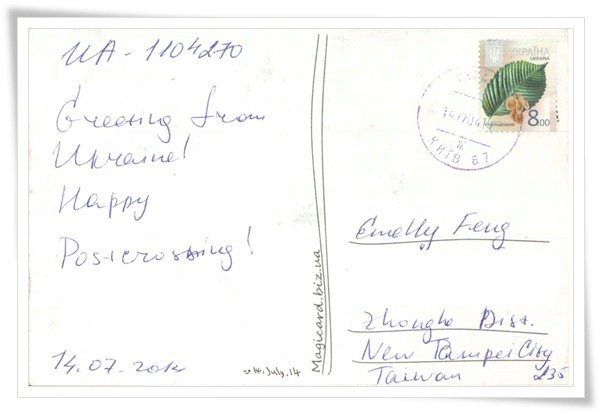 UA-1104270
Greeting from
Ukraine!
Happy
Postcrossing!
14.07.2014
Magicard.biz.ua
УКРАЇНА
UKRAINA
8.00
КИЇВ 67
Emelly Feng
Zhonghe Dist.
New Taipei City
Taiwan 235